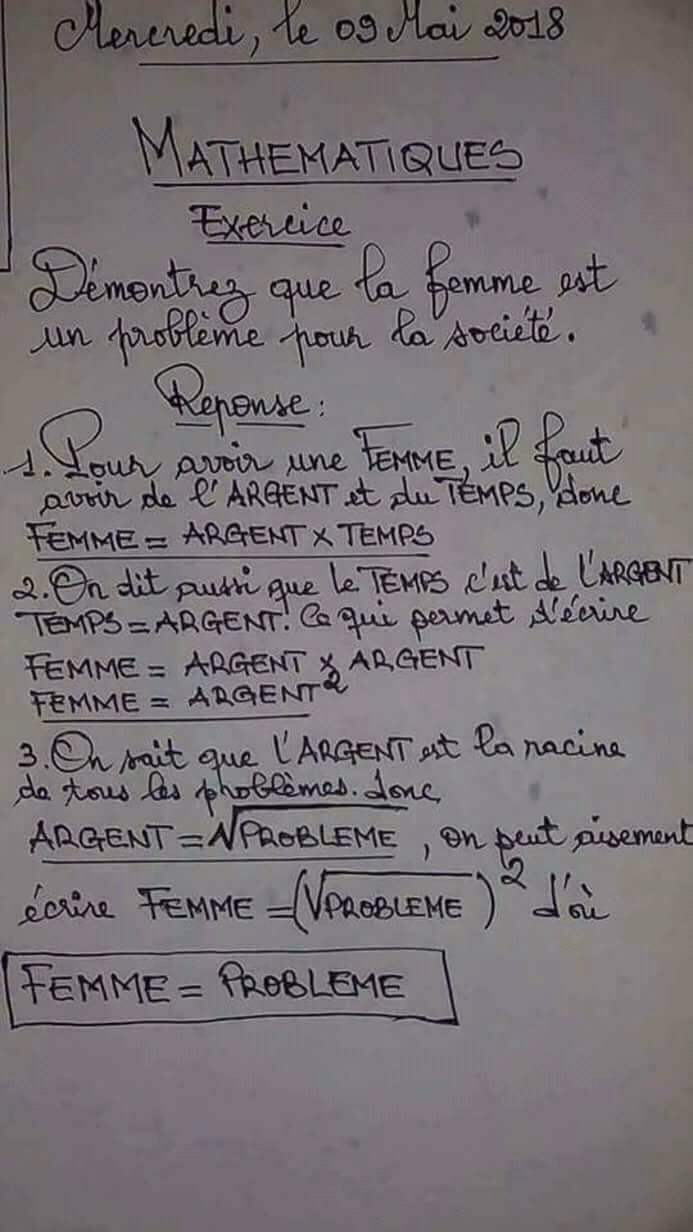 Mercredi, le 09 Mai 2018
MATHEMATIQUES
Exercice
Démontrez que la femme est
un problème pour la société.
Reponse:
1. Pour avoir une FEMME, il faut
avoir de l'ARGENT et du TEMPS, donc
FEMME = ARGENT x TEMPS
2. On dit aussi que le TEMPS c'est de l'ARGENT
TEMPS = ARGENT. Ce qui permet d'écrire
FEMME = ARGENT x ARGENT
FEMME = ARGENT²
3. On sait que l'ARGENT est la racine
de tous les problèmes. donc
ARGENT = √PROBLEME, on peut aisement
écrire FEMME = (√PROBLEME)² d'où
FEMME = PROBLEME